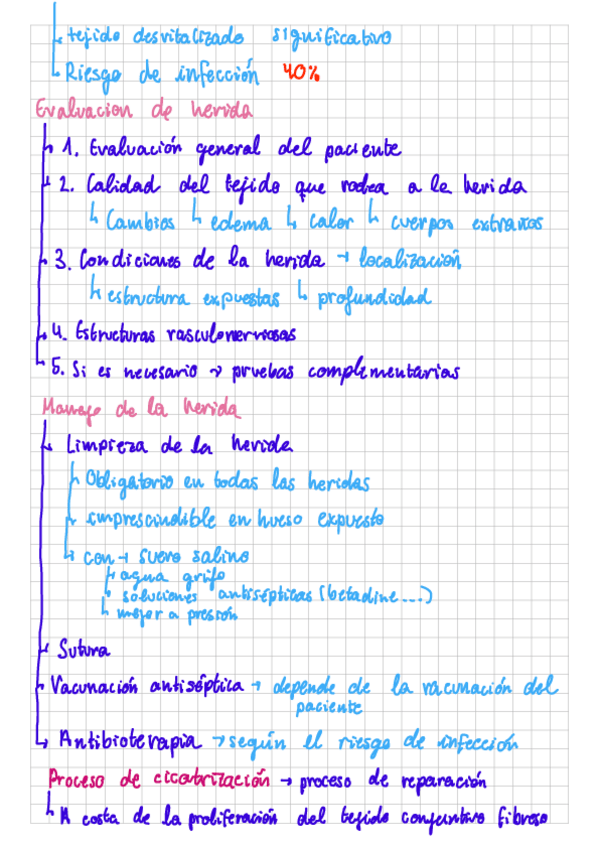 tejido desvitalizado significativo
Riesgo de infección 40%
Evaluacion de herida
1. Evaluación general del paciente
2. Calidad del tejido que rodea a la herida
Cambios edema calor cuerpos extraños
3. Condiciones de la herida → localización
estructura expuestas profundidad
4. Estructuras vasculonerviosas
5. Si es necesario → pruebas complementarias
Manejo de la herida
Limpieza de la herida
Obligatorio en todas las heridas
imprescindible en hueso expuesto
con → suero salino
agua grifo
soluciones antisépticas (betadine...)
mejor a presión
Sutura
Vacunación antiséptica → depende de la vacunación del
paciente
Antibioterapia → según el riesgo de infección
Proceso de cicatrización → proceso de reparación
A costa de la proliferación del tejido conjuntivo fibroso